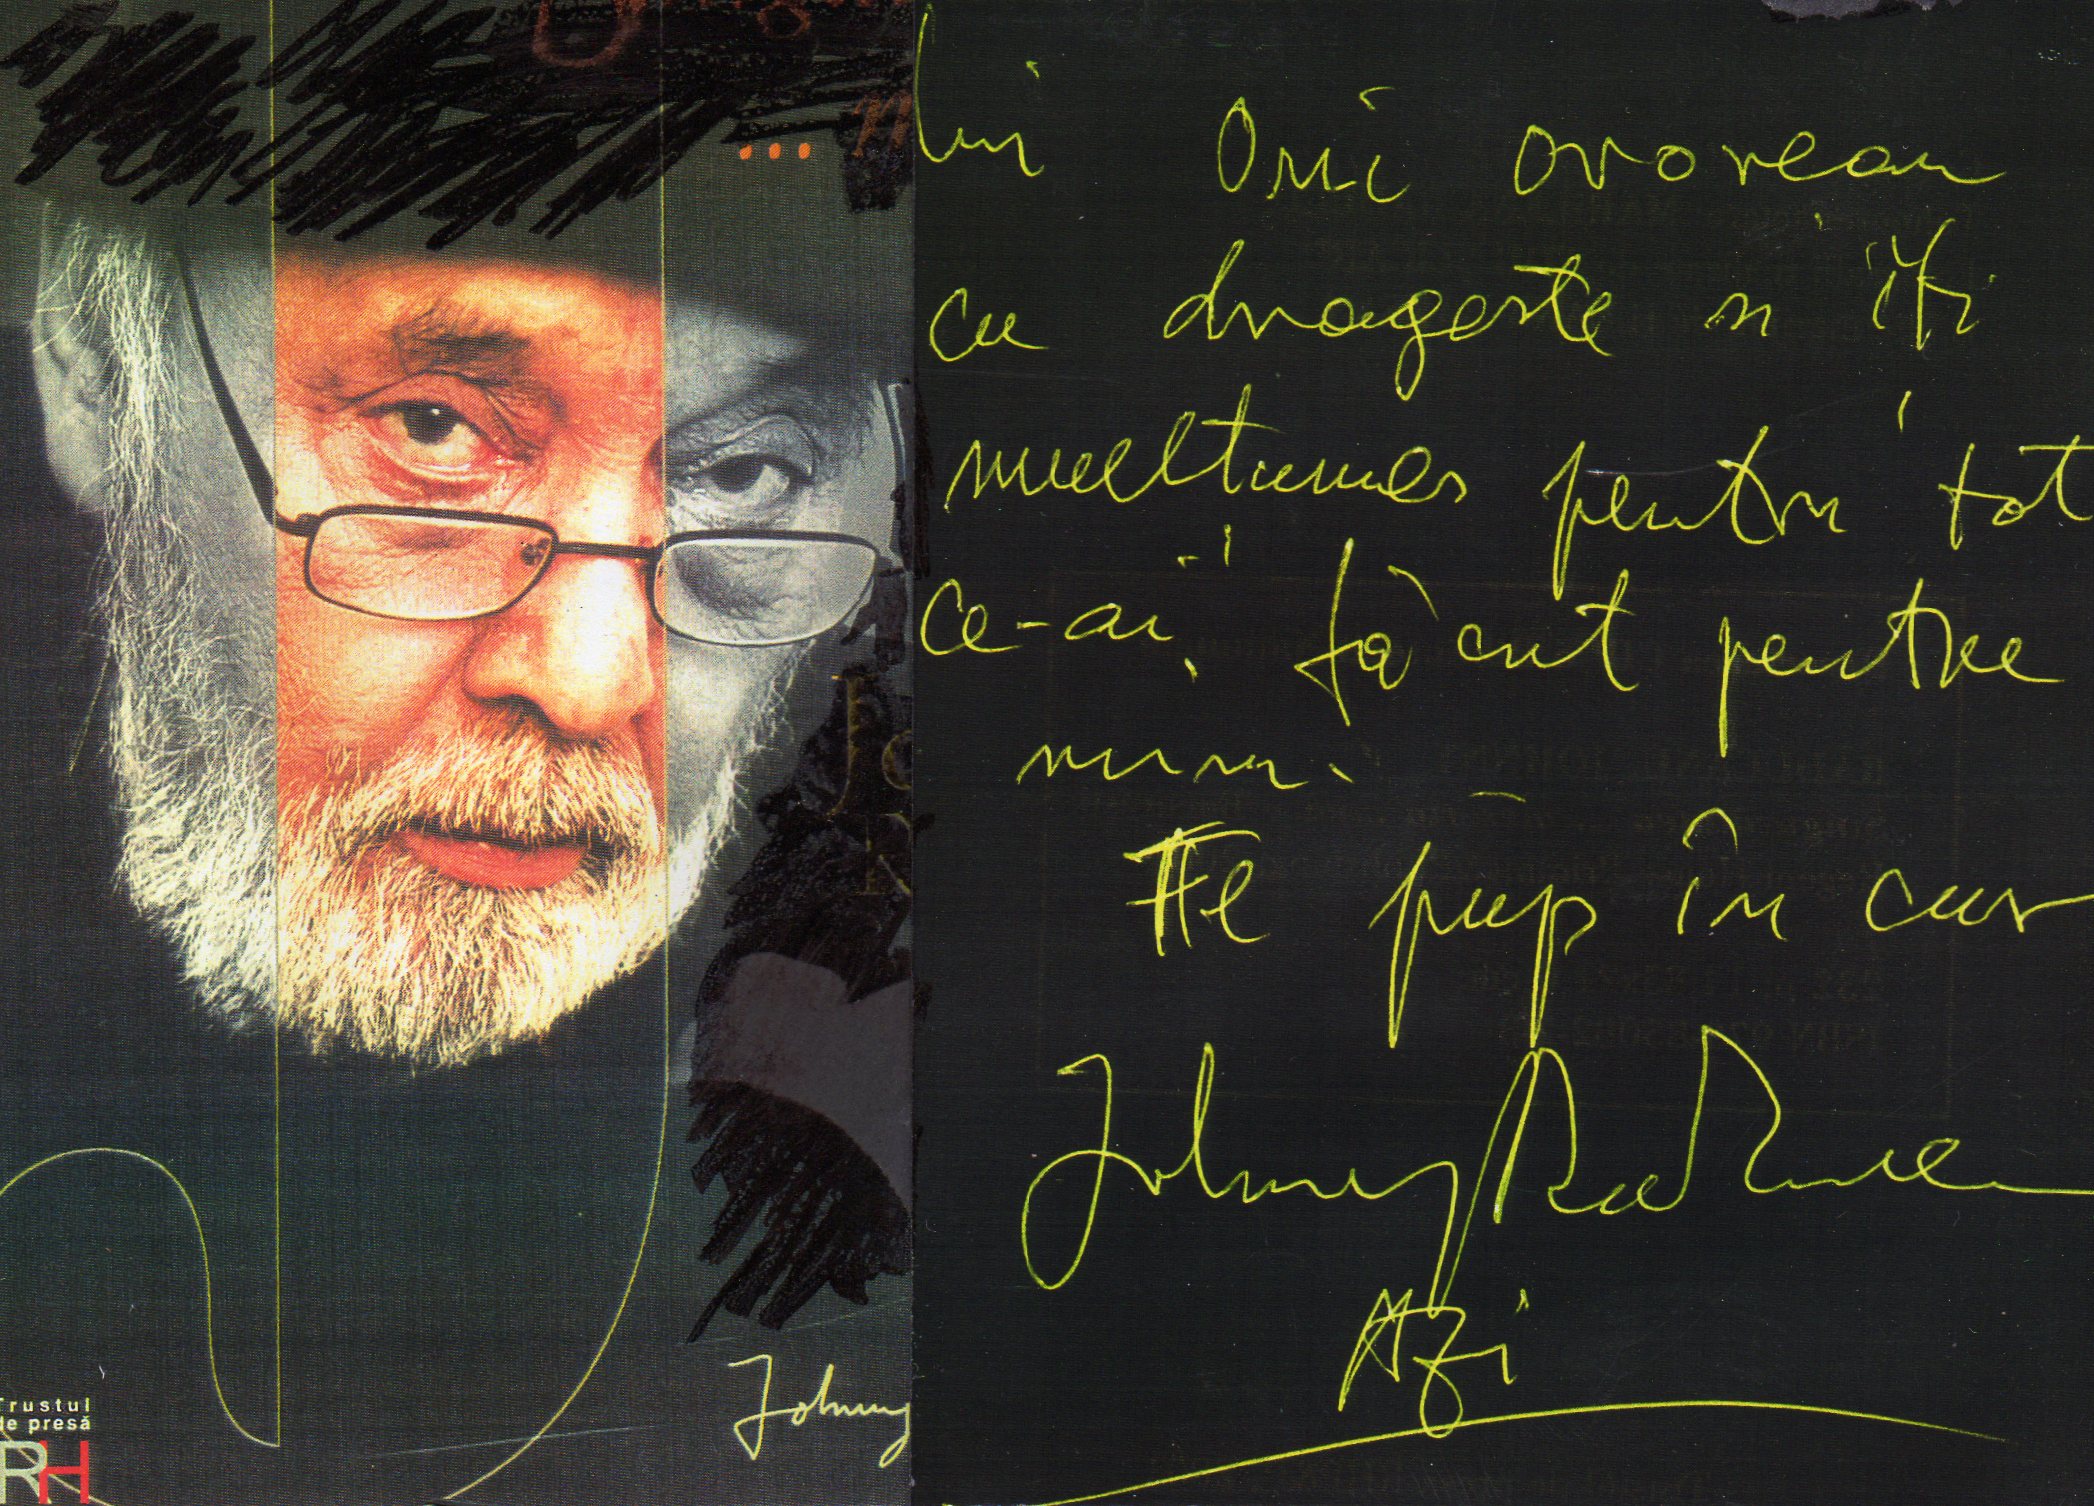 Trustul
de presă
RH
Johnny
...
Lui Oni-i ovorean
cu dragoste si îti
multumesc pentru tot
ce-ai făcut pentru
mine.
Te pup în cur
Johnny Răducanu
Azi